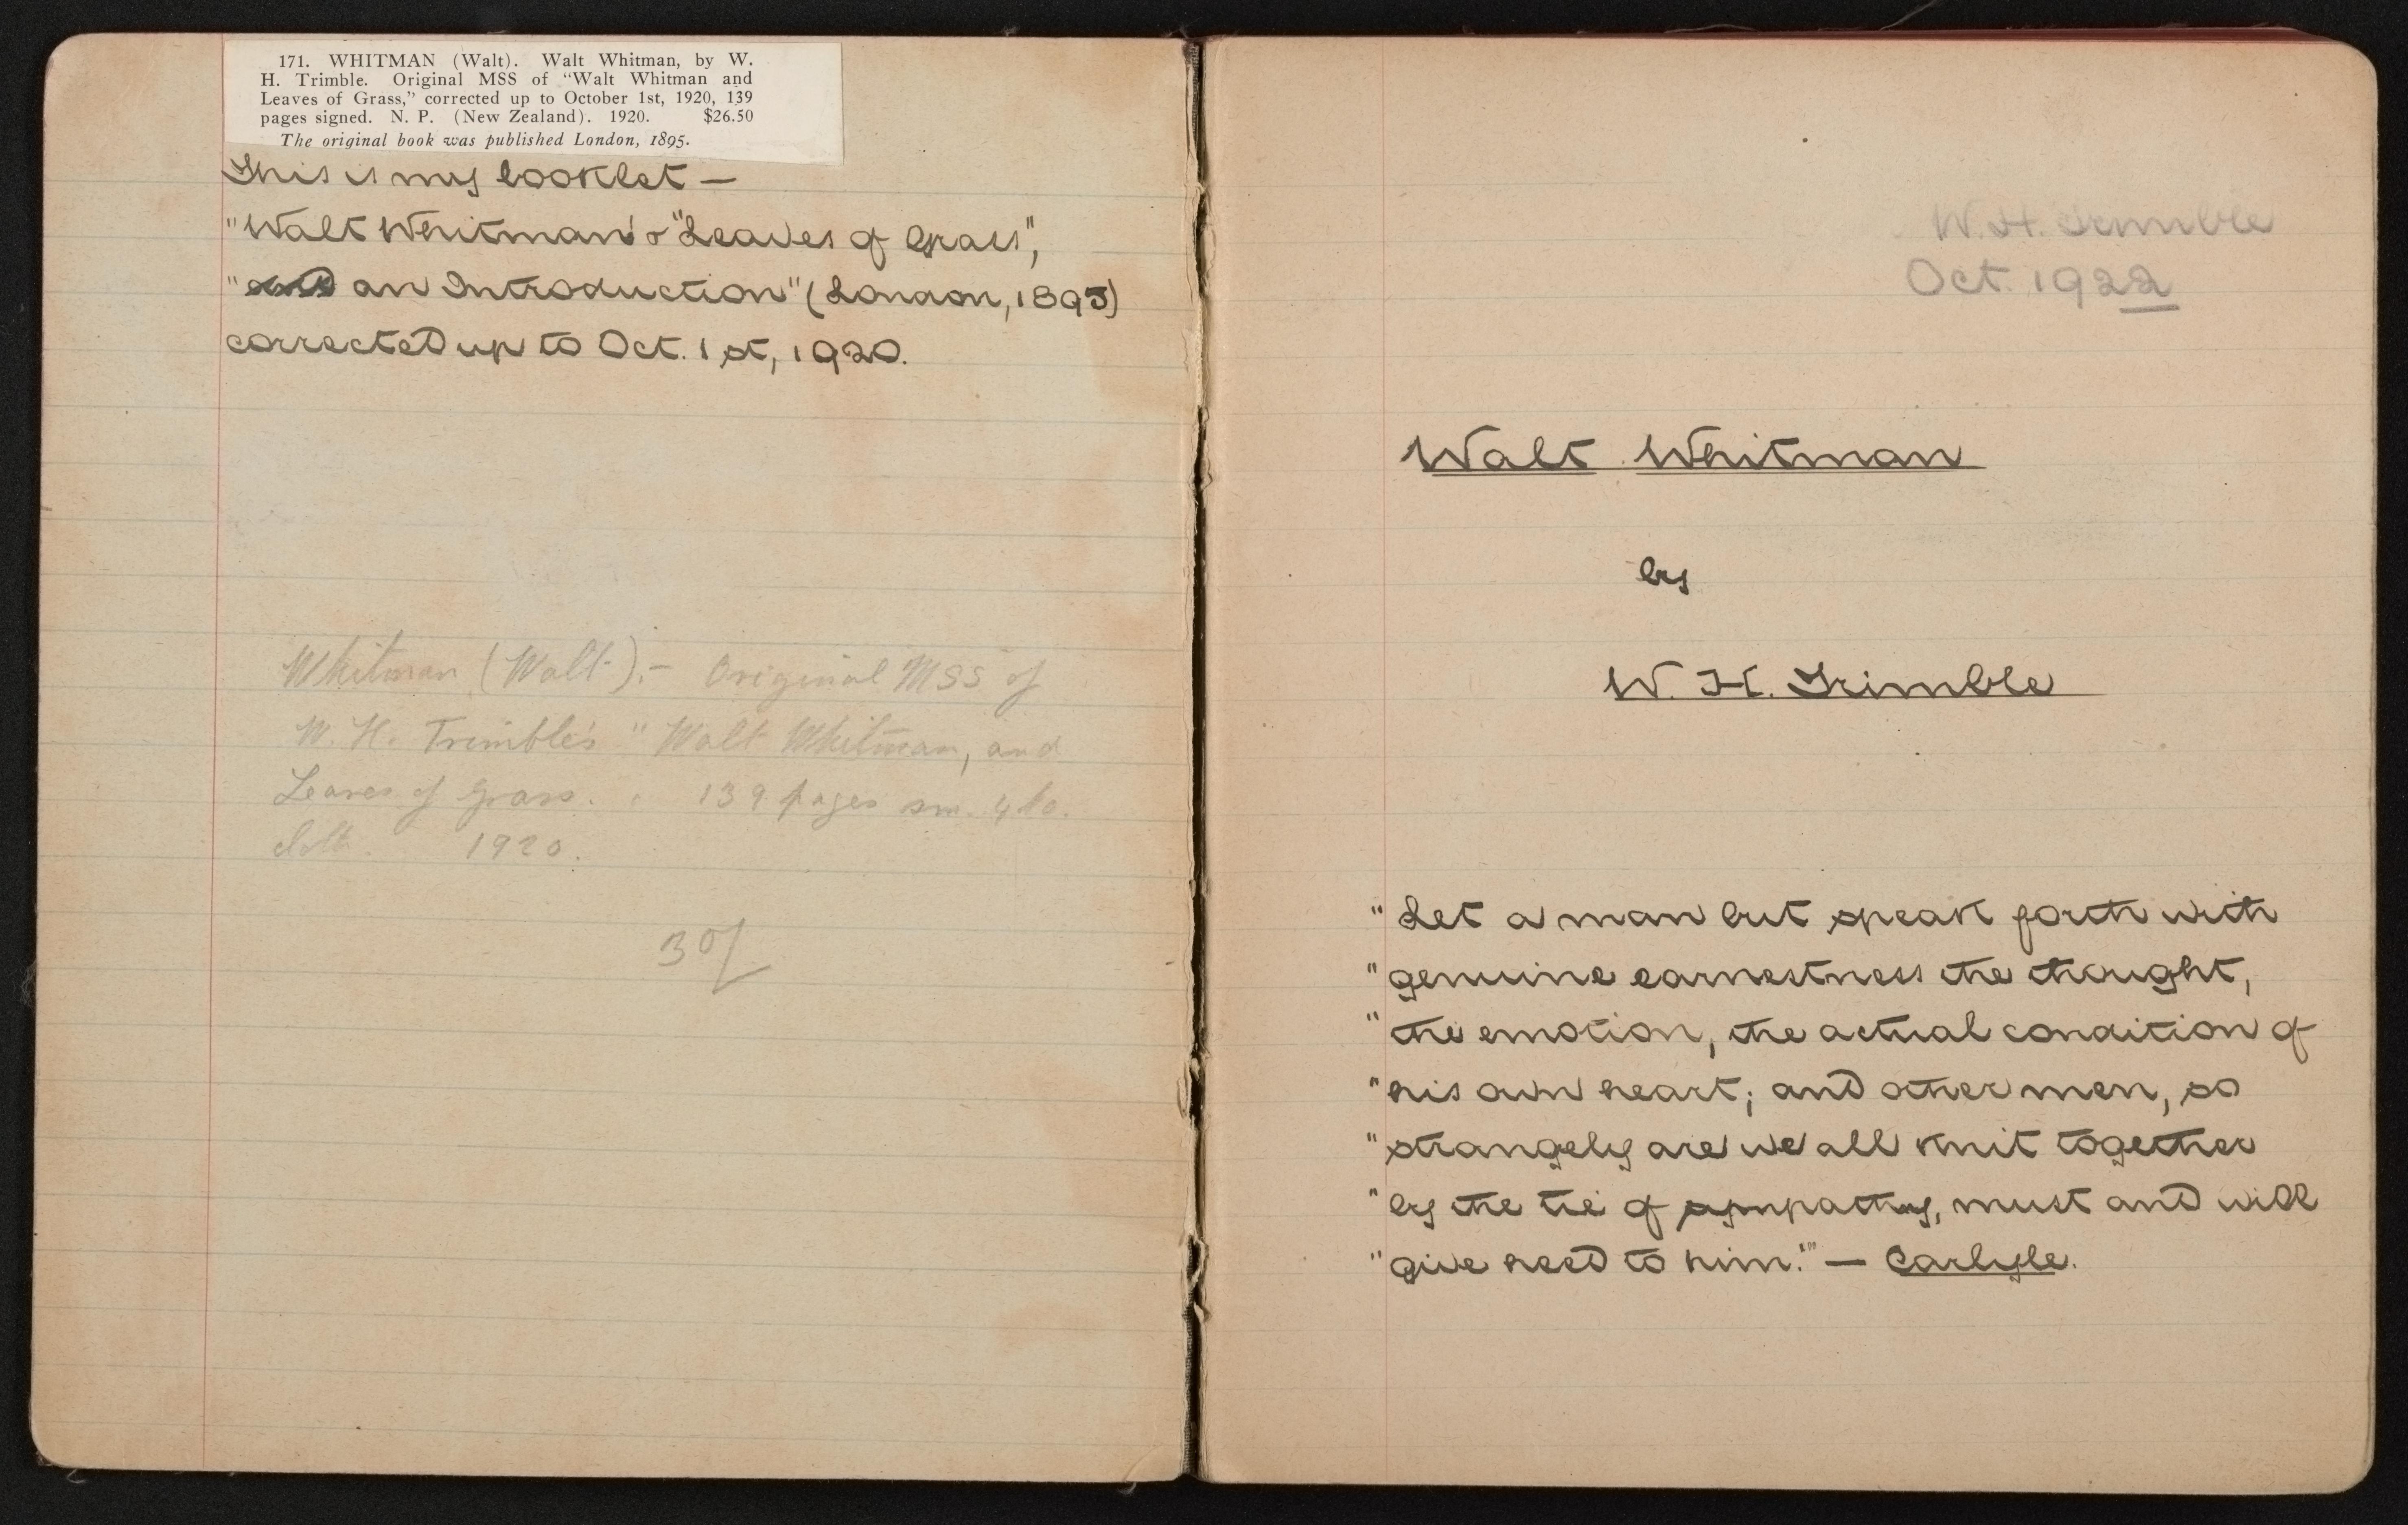 171. WHITMAN (Walt). Walt Whitman, by W.
H. Trimble. Original MSS of "Walt Whitman and
Leaves of Grass," corrected up to October 1st, 1920, 139
pages signed. N. P. (New Zealand). 1920. $26.50
The original book was published London, 1895.
This is my booklet —
"Walt Whitman & "Leaves of Grass",
" an Introduction" (London, 1895)
corrected up to Oct. 1st, 1920.
Whitman (Walt).– Original MSS of
W. H. Trimble's "Walt Whitman, and
Leaves of Grass. 139 pages sm. 4to.
cloth. 1920.
30/
W. H. Trimble
Oct. 1922
Walt Whitman
by
W. H. Trimble
"Let a man but speak forth with
"genuine earnestness the thought,
"the emotion, the actual condition of
"his own heart; and other men, so
"strangely are we all knit together
"by the tie of sympathy, must and will
"give heed to him." — Carlyle.